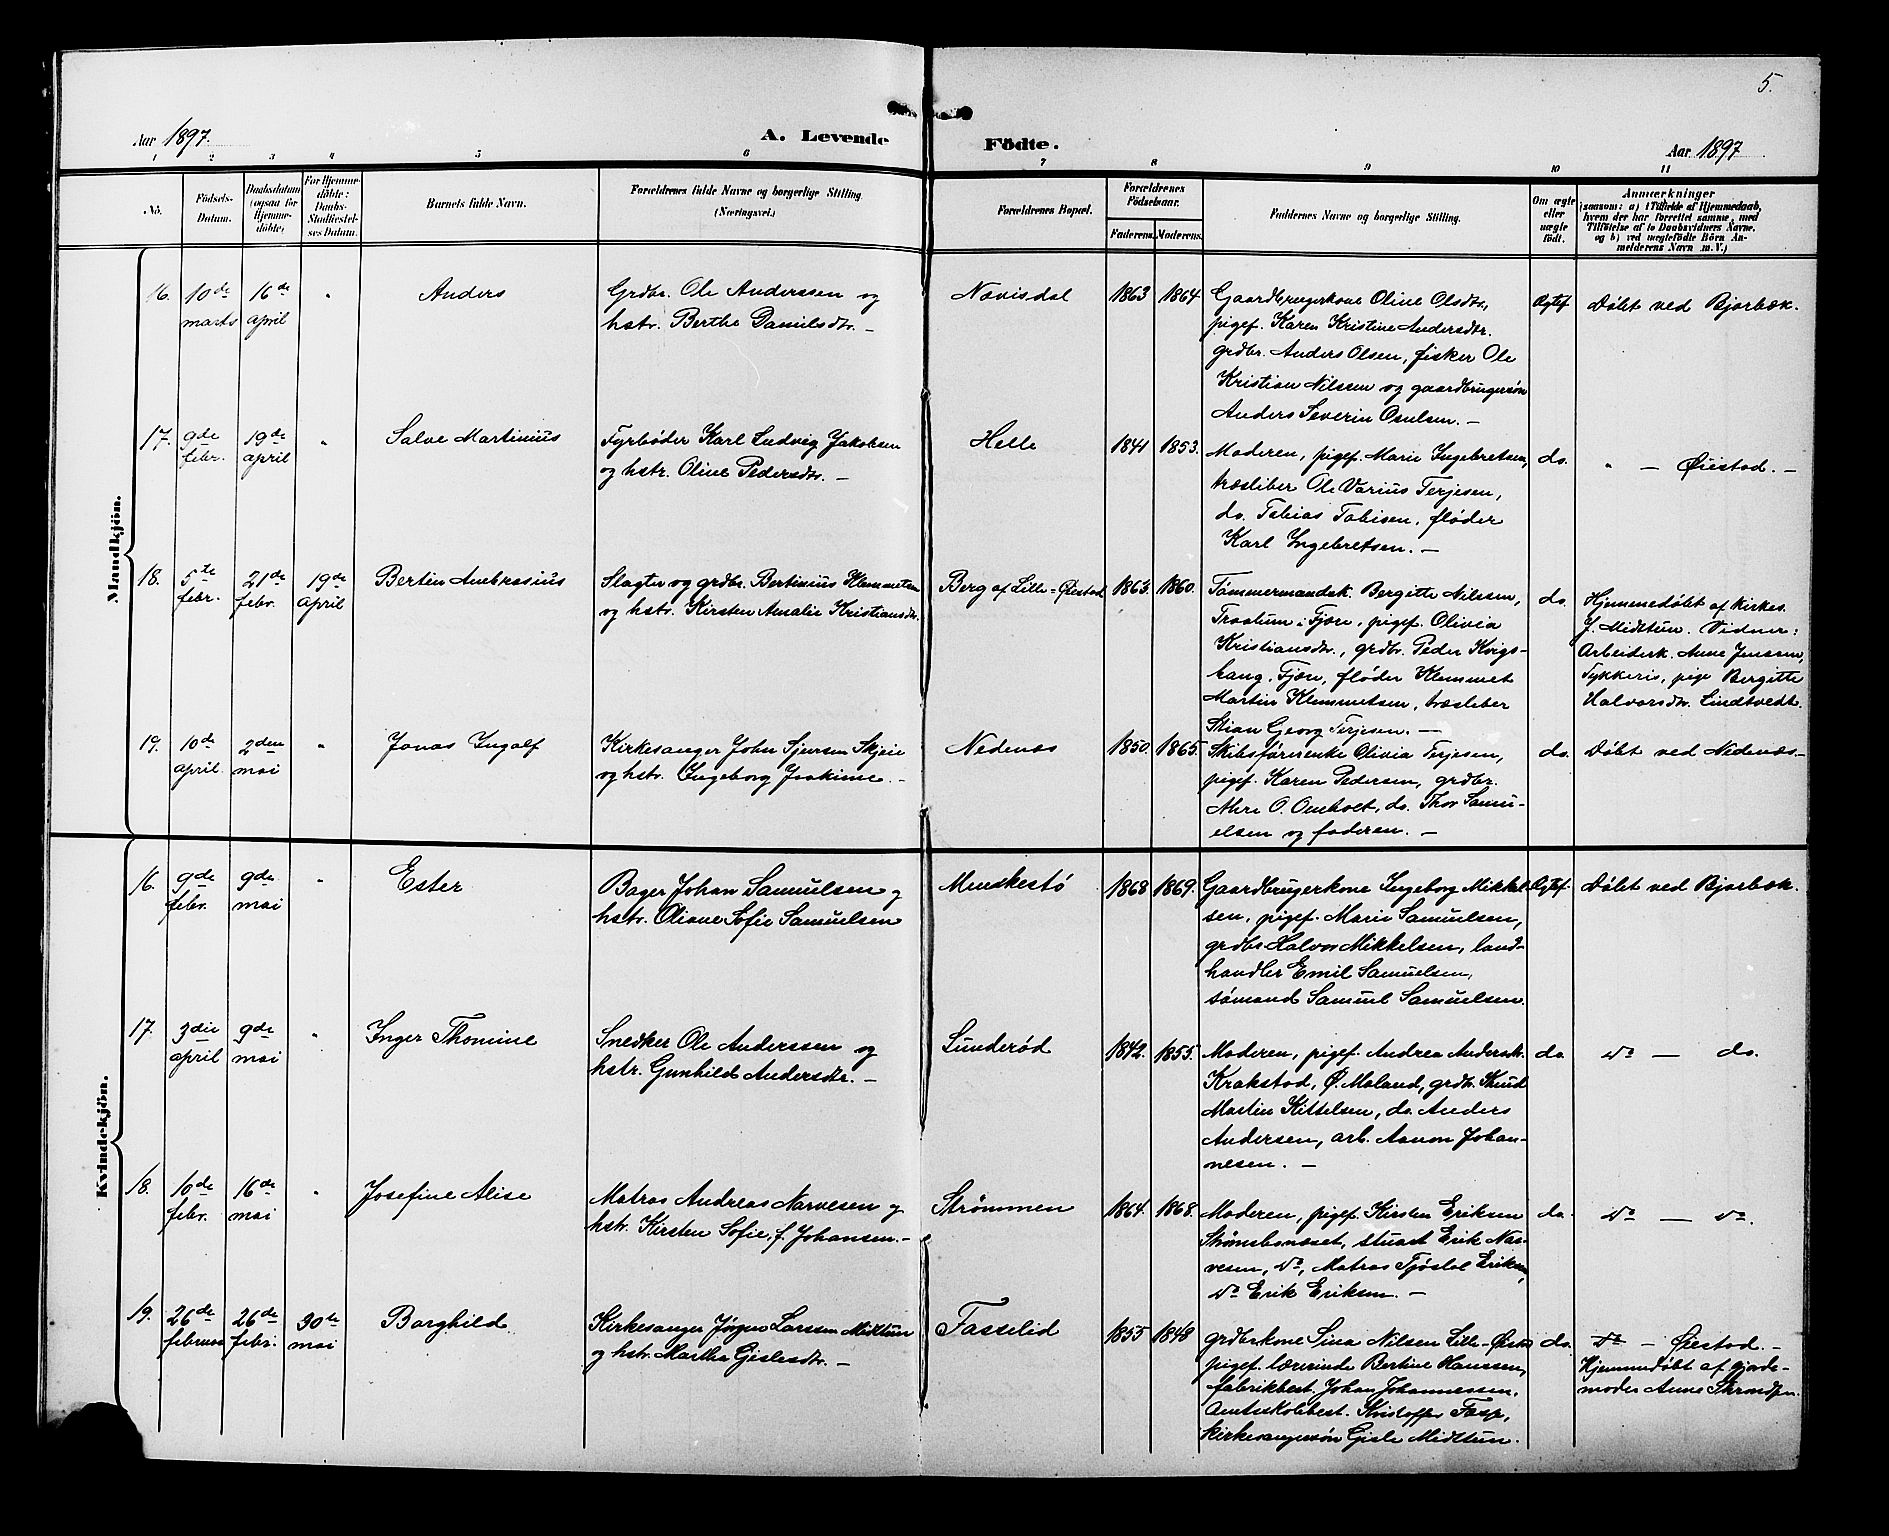 5.
Aar 1897.
A. Levende Födte.
Aar 1897
1 2 3 4 5 6 7 8 9 10 11
No.
Födsels-
Datum.
Daabsdatum
(ogsaa for
Hjemme-
döbte)
For Hjemme-
döbte:
Daabs-
Stadfæstel-
ses Datum.
Barnets fulde Navn.
Forældrenes fulde Navne og borgerlige Stilling.
(Næringsvei.)
Forældrenes Bopæl.
Forældrenes
Födselsaar.
Faderens. Moderens.
Faddernes Navne og borgerlige Stilling.
Om ægte
eller
uægte
födt.
Anmærkninger
(saasom: a) i Tilfælde af Hjemmedaab,
hvem der har forrettet samme, med
Tilföielse af to Daabsvidners Navne,
og b) ved uægtefödte Börn An-
melderens Navn m. V.)
Mandkjön.
16.
10de
marts
16de
april
"
Anders
Grdbr. Ole Anderssen og
hstr. Berthe Danielsdtr. —
Nævisdal
1863
1864
Gaardbrugerkone Oline Olsdtr.,
pigef. Karen Kristine Andersdtr.
grdbr. Anders Olsen, fisker Ole
Kristian Nilssen og gaardbrugersøn
Anders Severin Osulsen. —
Ægtef.
Døbt ved Bjorbæk.
17.
9de
febr.
19de
april
"
Salve Martinius
Fyrbøder Karl Ludvig Jakobsen
og hstr. Oline Pedersdtr. —
Helle
1841
1853.
Moderen, pigef. Marie Ingebretsen,
træsliber Ole Varius Terjesen,
do. Tobias Tobisen, fløder
Karl Ingebretsen. —
do.
" — Øiestad. —
18.
5te
febr.
21de
febr.
19de
april
Bertin Ambrosius
Slagter og grdbr. Bertinius Klemmetsen
og hstr. Kirsten Amalie Kristiansdtr.
Berg af Lille-Øiestad
1863.
1860.
Tømmermandsk. Bergitte Nilssen,
i Fjære, pigef. Olivia
Kristiansdtr., grdbr. Peder Kvigs-
haug, Fjære, fløder Klemmet
Martin Klemmetsen, træsliber
Stian Georg Terjesen. —
do.
Hjemmedøbt af kirkes.
J. Midtun. Vidner:
Arbeiderk. Anne Jenssen,
pige Bergitte
Halvorsdtr. Lindtvedt.
19.
10de
april
2den
mai
"
Jonas Ingolf
Kirkesanger John Sjursen Skjeie
og hstr. Ingeborg Joakime. —
Nedenæs
1850.
1865.
Skibsførerenke Olivia Terjesen,
pigef. Karen Pedersen, grdbr.
O. Omholt, do. Thor Samu-
elsen og faderen. —
do.
Døbt ved Nedenæs.
Kvindekjön.
16.
9de
febr.
9de
mai
"
Ester
Bager Johan Samuelsen og
hstr. Oliane Sofie Samuelsen
Menskestø
1868
1869.
Gaardbrugerkone Ingeborg Mikkel-
sen, pigef. Marie Samuelsen,
grdbr. Halvor Mikkelsen, land-
handler Emil Samuelsen,
sømand Samuel Samuelsen.
Ægtef.
Døbt ved Bjorbæk.
17.
3die
april
9de
mai
"
Inger Thomine
Snedker Ole Anderssen og
hstr. Gunhild Andersdtr. —
Lunderød
1842.
1855.
Moderen, pigef. Andrea Andersdtr.
Krakstad, Ø. Moland, grdbr. Knud
Martin Kittelsen, do. Anders
Andersen, arb. Aanon Johan-
nesen. —
do.
do — do.
18.
10de
febr.
16de
mai
"
Josefine Alise
Matros Andreas Narvesen og
hstr. Kirsten Sofie, f. Johansen. —
Strømmen
1864.
1868.
Moderen, pigef. Kirsten Eriksen
Strømsbunæset, stuert Erik Nar-
vesen, do, Matros Tjøstol Eriksen,
do Erik Eriksen. —
do.
do — do.
19.
26de
februar
26de
febr.
30te
mai
Borghild
Kirkesanger Jørgen Larssen Midtun
og hstr. Marthe Gislesdtr. —
Fasselid
1855
1848
grdbrkone Sina Nilsen Lille-Øiestad
pigef. lærerinde Bertine Hanssen,
fabrikbest. Johan Johannessen,
Amtsskolebest. Kristoffer Fasp,
kirkesangersøn Gisle Midttun.
do.
do — Øiestad. —
Hjemmedøbt af gjorde-
moder Anne